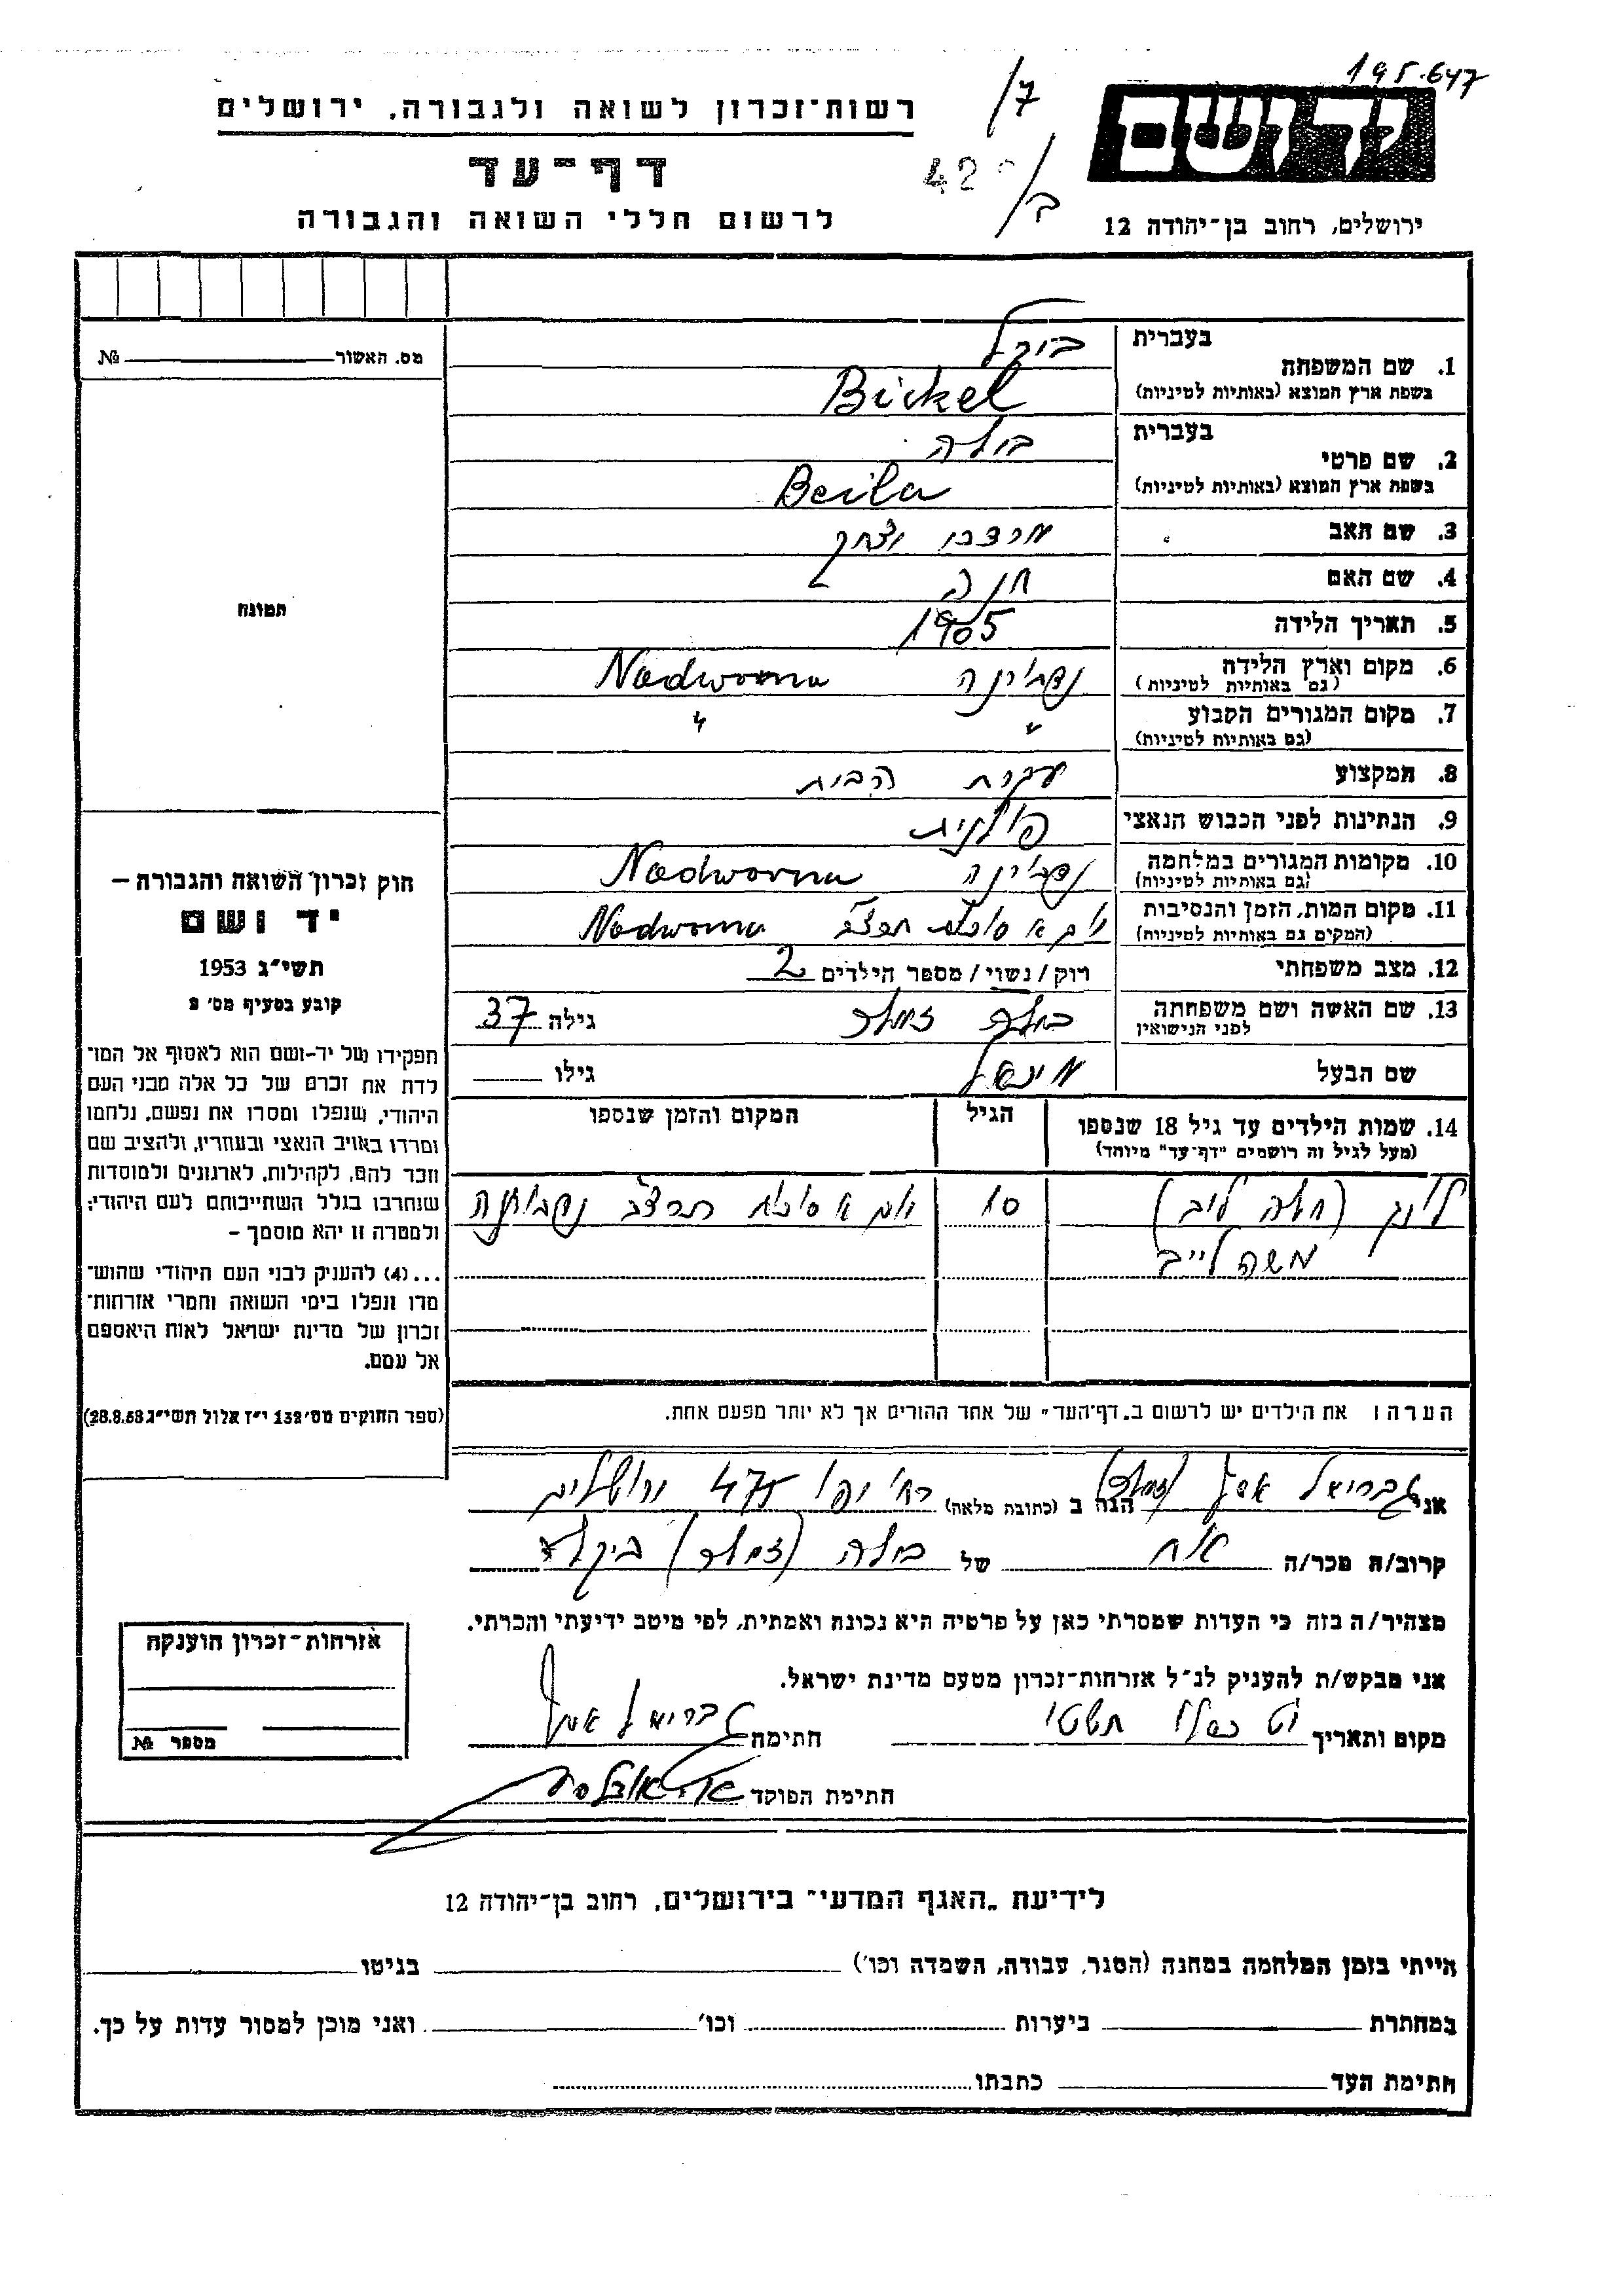 195.647
יד ושם
רשות־זכרון לשואה ולגבורה, ירושלים
דף־עד
לרשום חללי השואה והגבורה
ירושלים, רחוב בן־יהודה 12
7/
42
ב/
מס. האשור № 
בעברית ביקל
1. שם המשפחה
בשפת ארץ המוצא (באותיות לטיניות) Bickel
בעברית בילה
2. שם פרטי
בשפת ארץ המוצא (באותיות לטיניות) Beila
3. שם האב מרדכי יצחק
4. שם האם חנה
5. תאריך הלידה 1905
6. מקום וארץ הלידה Nadworna
(גם באותיות לטיניות)
7. מקום המגורים הקבוע " "
(גם באותיות לטיניות)
8. המקצוע עקרת הבית
9. הנתינות לפני הכבוש הנאצי פולנית
10. מקומות המגורים במלחמה Nadworna
(גם באותיות לטיניות)
11. מקום המות, הזמן והנסיבות יום א סוכות Nadworna
(המקום גם באותיות לטיניות)
12. מצב משפחתי רוק / נשוי / מספר הילדים 2
13. שם האשה ושם משפחתה בילה גילה 37
לפני הנישואין
שם הבעל גילו
14. שמות הילדים עד גיל 18 שנספו הגיל המקום והזמן שנספו
(מעל לגיל זה רושמים "דף־עד" מיוחד)
10 יום א סוכות
משה לייב
הערה: את הילדים יש לרשום ב„דף־העד" של אחד ההורים אך לא יותר מפעם אחת.
תמונה
חוק זכרון השואה והגבורה –
יד ושם
תשי"ג 1953
קובע בסעיף מס' 2
תפקידו של יד־ושם הוא לאסוף אל המו־
לדת את זכרם של כל אלה מבני העם
היהודי, שנפלו ומסרו את נפשם, נלחמו
ומרדו באויב הנאצי ובעוזריו, ולהציב שם
וזכר להם, לקהילות, לארגונים ולמוסדות
שנחרבו בגלל השתייכותם לעם היהודי;
ולמטרה זו יהא מוסמך –
...(4) להעניק לבני העם היהודי שהוש־
מדו ונפלו בימי השואה והמרי אזרחות־
זכרון של מדינת ישראל לאות היאספם
אל עמם.
(ספר החוקים מס' 132 י"ז אלול תשי"ג 28.8.53)
אני גבריאל אסף הגה ב (כתובת מלאה) רח' יפו ירושלים
קרוב/ה מכר/ה אח של בילה ביקל
מצהיר/ה בזה כי העדות שמסרתי כאן על פרטיה היא נכונה ואמתית, לפי מיטב ידיעתי והכרתי.
אני מבקש/ת להעניק לנ"ל אזרחות־זכרון מטעם מדינת ישראל.
מקום ותאריך כסלו חתימה גבריאל אסף
חתימת הפוקד
אזרחות־זכרון הוענקה
מספר №
לידיעת „האגף המדעי" בירושלים, רחוב בן־יהודה 12
הייתי בזמן המלחמה במחנה (הסגר, עבודה, השמדה וכו') בגיטו
במחתרת ביערות וכו' ואני מוכן למסור עדות על כך.
חתימת העד כתבתו